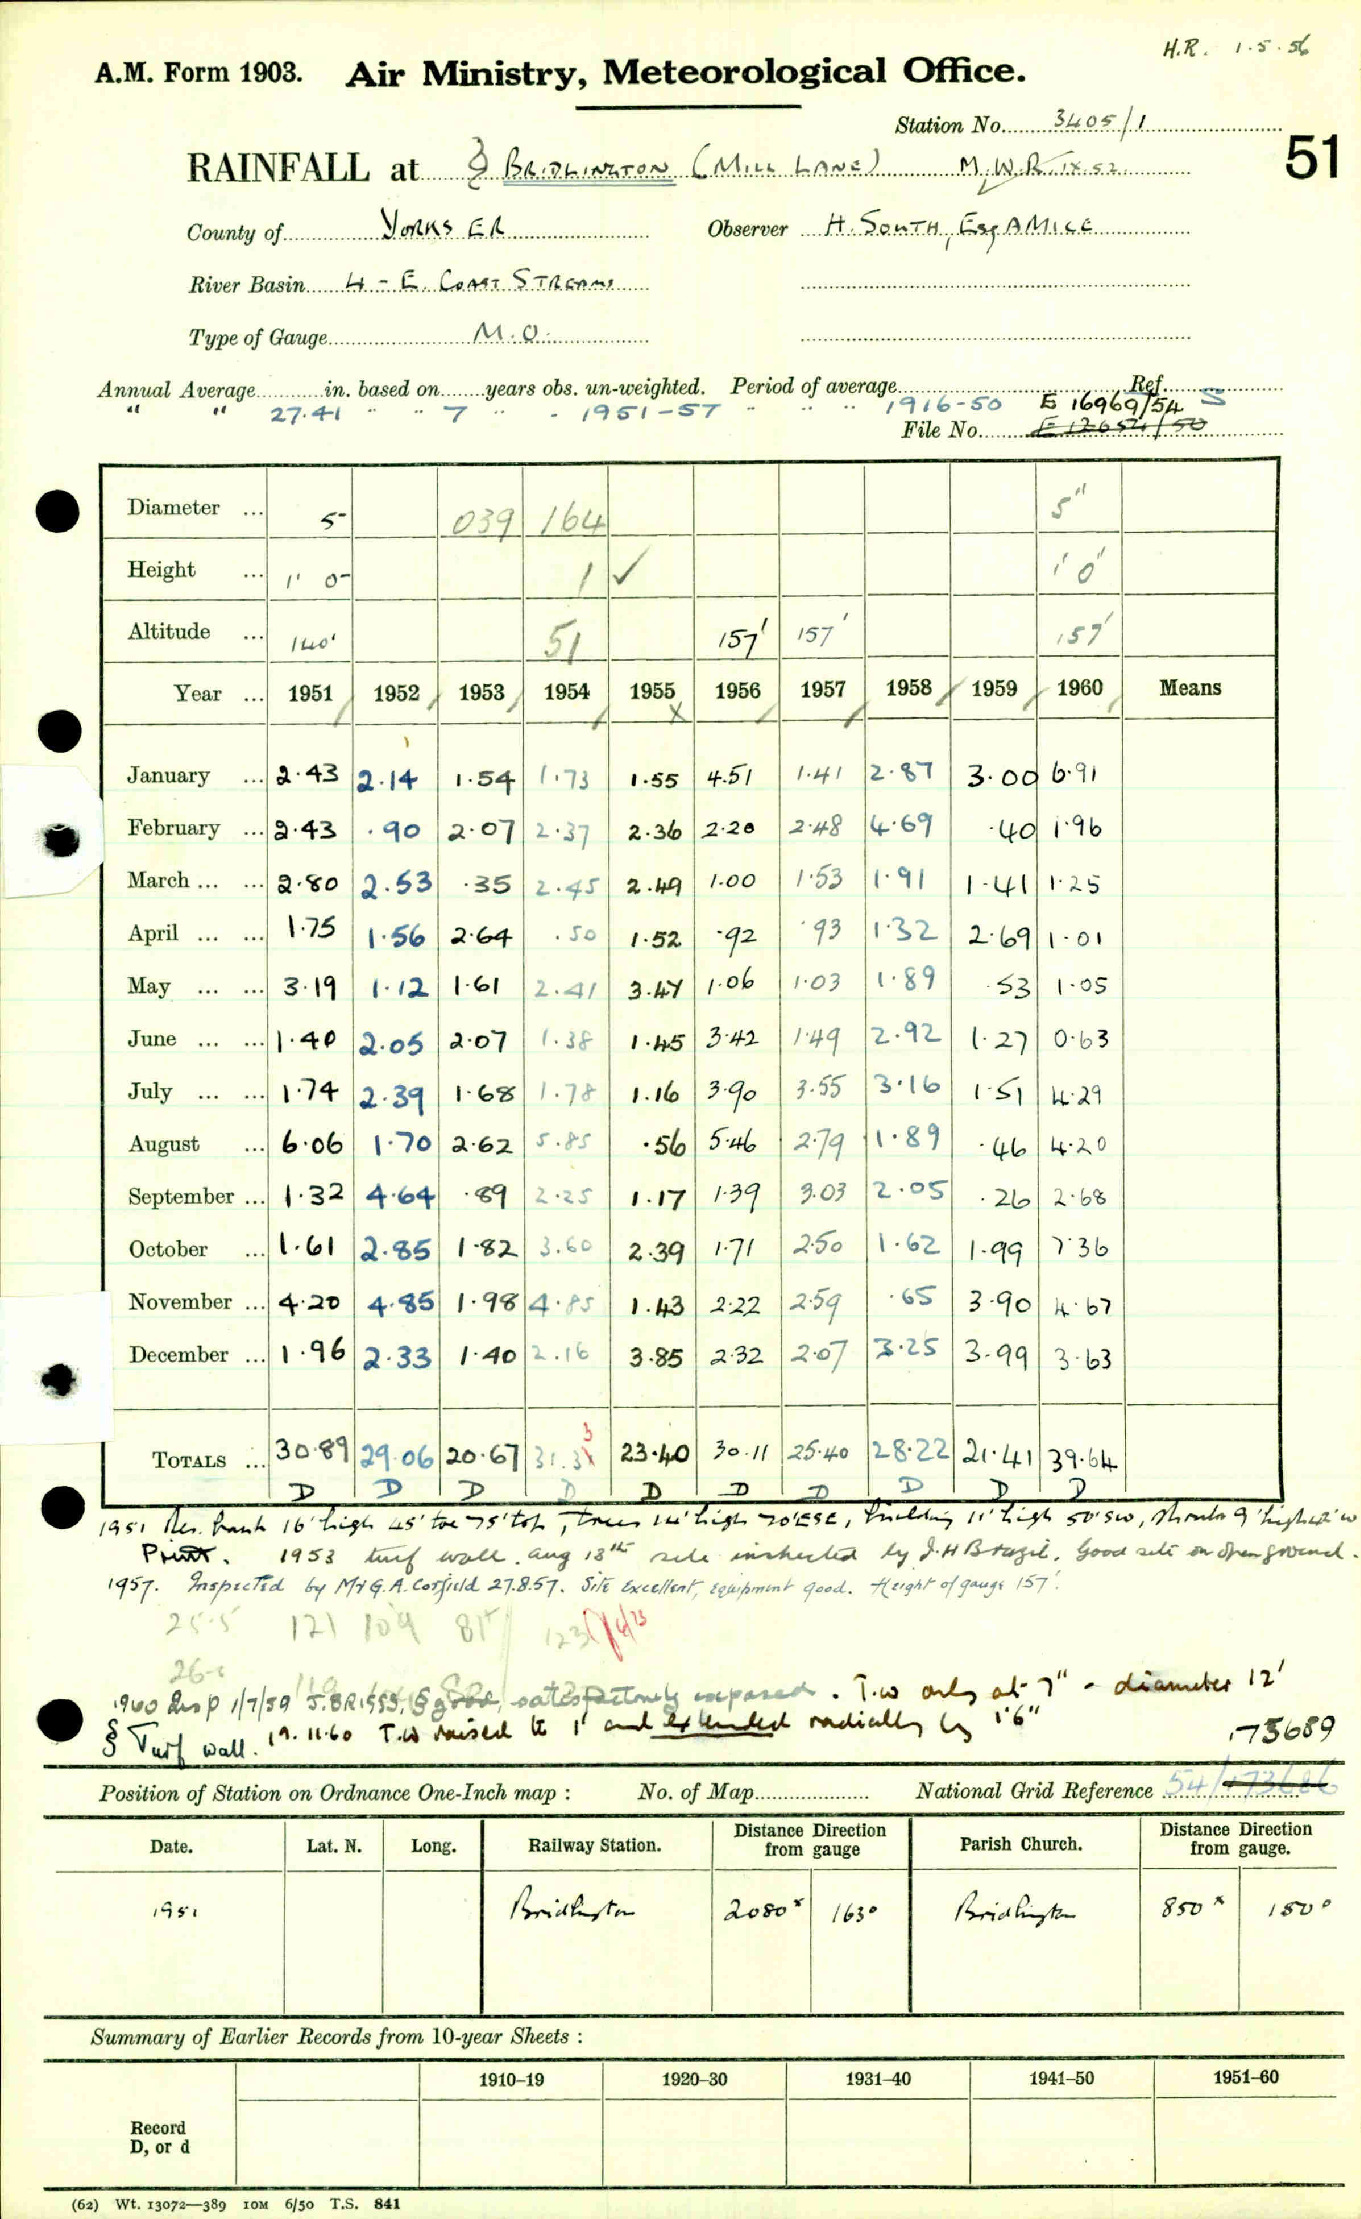 H.R. 1.5.56
A.M. Form 1903. Air Ministry, Meteorological Office.
Station No. 3405/1
RAINFALL at § BRIDLINGTON (MILL LANE) M.W.R. IX.52. 51
County of YORKS ER Observer H. SOUTH, Esq AMICE
River Basin 4 - E. COAST STREAMS
Type of Gauge M.O.
Annual Average in. based on years obs. un-weighted. Period of average Ref.
" " 27.41 " " 7 " - 1951-57 " " " 1916-50 E 16969/54 S
File No. E 12654/50
Diameter ... 5 039 164 5"
Height ... 1' 0 1 ✓ 1' 0"
Altitude ... 140' 51 157' 157' 157'
Year ... 1951 1952 1953 1954 1955 1956 1957 1958 1959 1960 Means
January ... 2.43 2.14 1.54 1.73 1.55 4.51 1.41 2.87 3.00 6.91
February ... 2.43 .90 2.07 2.37 2.36 2.20 2.48 4.69 .40 1.96
March ... ... 2.80 2.53 .35 2.45 2.49 1.00 1.53 1.91 1.41 1.25
April ... ... 1.75 1.56 2.64 .50 1.52 .92 .93 1.32 2.69 1.01
May ... ... 3.19 1.12 1.61 2.41 3.47 1.06 1.03 1.89 .53 1.05
June ... ... 1.40 2.05 2.07 1.38 1.45 3.42 1.49 2.92 1.27 0.63
July ... ... 1.74 2.39 1.68 1.78 1.16 3.90 3.55 3.16 1.51 4.29
August ... 6.06 1.70 2.62 5.85 .56 5.46 2.79 1.89 .46 4.20
September ... 1.32 4.64 .89 2.25 1.17 1.39 3.03 2.05 .26 2.68
October ... 1.61 2.85 1.82 3.60 2.39 1.71 2.50 1.62 1.99 7.36
November ... 4.20 4.85 1.98 4.85 1.43 2.22 2.59 .65 3.90 4.67
December ... 1.96 2.33 1.40 2.16 3.85 2.32 2.07 3.25 3.99 3.63
TOTALS ... 30.89 29.06 20.67 31.33 23.40 30.11 25.40 28.22 21.41 39.64
D D D D D D D D D D
1951 Res. bank 16' high 45' toe 75' top, trees 14' high 70' ESE, building 11' high 50' SW, shrubs 9' high 42' W
Print. 1953 turf wall. Aug 18th site inspected by J.H Brazil. Good site on open ground.
1957. Inspected by Mr G.A. Corfield 27.8.57. Site Excellent, equipment good. Height of gauge 157'.
25.5 121 109 81 123
1960 Insp 1/7/59 satisfactorily exposed. T.W only at 7" - diameter 12'
§ Turf wall. 19.11.60 T.W raised to 1' and extended radially by 1'6"
173689
Position of Station on Ordnance One-Inch map : No. of Map National Grid Reference 54/173686
Date. Lat. N. Long. Railway Station. Distance from Direction gauge Parish Church. Distance from Direction gauge.
1951 Bridlington 2080x 163° Bridlington 850x 150°
Summary of Earlier Records from 10-year Sheets :
1910–19 1920–30 1931–40 1941–50 1951–60
Record
D, or d
(62) Wt. 13072—389 10M 6/50 T.S. 841